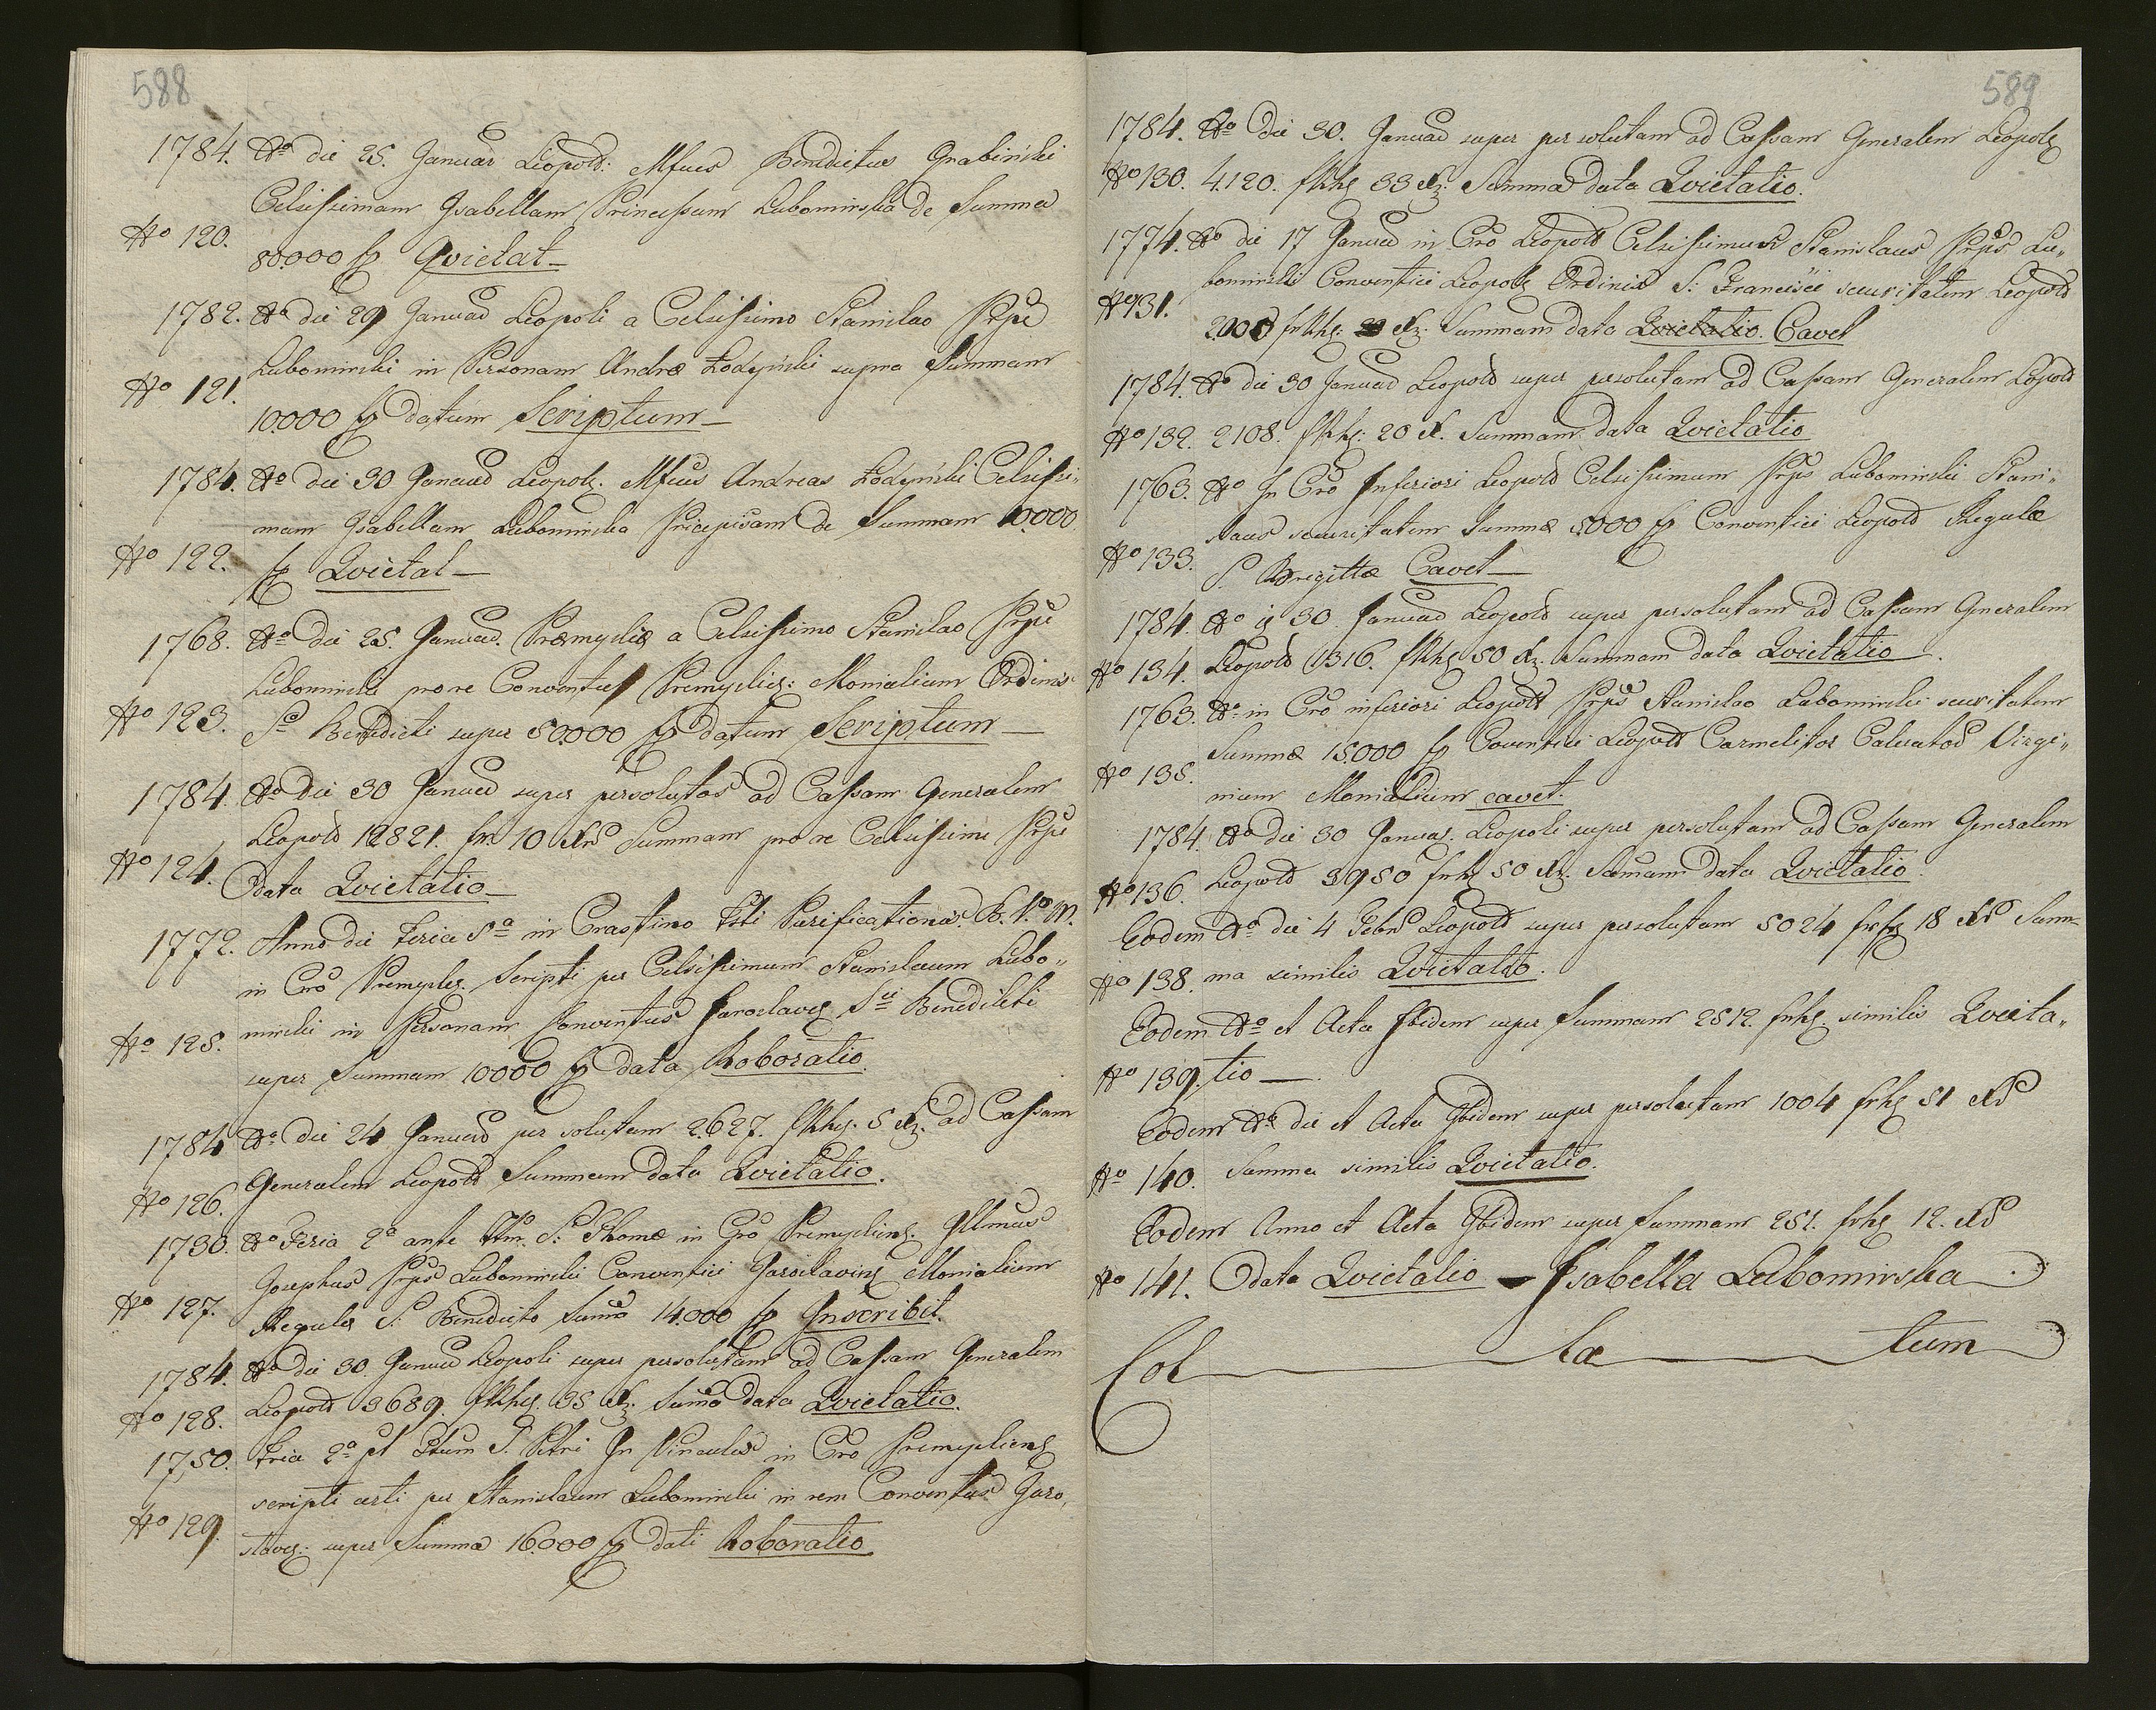 588
1784. Ao die 25. Januar Leopold: Mfcus Benedictus Grabiński
Celsissimam Isabellam Principissam Lubomirska de Summa
No 120.
80.000 fp Qvietat
1782. Ao die 29 Januar Leopoli a Celsissimo Stanislao Prpe
Lubomirski in Personam Andræ Łodyński supra Summam
No 121.
10.000 fp datum Scriptum
1784. Ao die 30 Januar Leopol. Mfcus Andreas Łodyński Celsissi„
mam Isabellam Lubomirska de Summam 10.000
No 122. fp Qvietat
1768. Ao die 25. Januar. Præmysliæ a Celsissimo Stanislao Prpe
Lubomirski pro re Conventus Premysliæ: Monialium Ordinis
No 123. Sc Benedicti super 50.000 fp datum Scriptum
1784. Ao die 30 Januar super persolutas ad Cassam Generalem
Leopold 12821. fr. 10 Xr Summam pro re Celsissimi Prps
No 124. data Qvietatio
1772. Anno die Feria 5a in Crastino Fsti Purificationis B. V. M.
in Cro Premysles. Scripti per Celsissimum Stanislaum Lubo„
No 125. mirski in Personam Conventus Jaroslaves Sti Benedicti
super Summam 10000 fp data Roboratio
1784 Ao die 24 Januar persolutam 2627. fRhs. 5 Xr. ad Cassam
No 126. Generalem Leopold Summam data Qvietatio.
1730. Ao Feria 2a ante Ftm. S. Thomæ in Cro Premysliens. Illmus
Josephus Prps Lubomirski Conventui Jaroslaviens Monialium
No 127. Regulæ S. Benedicto Summa 14.000 fp Inscribit.
1784. Ao die 30. Januar Leopoli super persolutam ad Cassam Generalem
No 128. Leopold 3689. fRhs. 35 Xr. Summa data Qvietatio.
1750. Fria 2a pt Ftum S. Petri In Vinculis in Cro Premysliens
scripti certi per Stanislaum Lubomirski in rem Conventus Jaro„
No 129. slaves: super Summa 16.000 fp dati Roboratio
589
1784. Ao die 30. Januar super persolutam ad Cassam Generalem Leopol
No 130. 4.120. fRhs 33 Xr. Summa data Qvietatio.
1774. Ao die 17 Januar in Cro Leopold Celsissimus Stanislaus Prps Lu„
bomirski Conventui Leopol Ordinis S: Francisci securitatem Leopold
No 131.
2000 frRhs. Xr. Summam data Qvietatio. Cavet
1784. Ao die 30 Januar Leopold super persolutam ad Cassam Generalem Leopold
No 132. 2108. fRhs. 20 X. Summam data Qvietatio
1763. Ao In Cro Inferiori Leopold Celsissimum Prps Lubomirski Stani„
slaus securitatem Summæ 5000 fp Conventui Leopold Regulæ
No 133. S. Bregittæ Cavet
1784. Ao 30. Januar Leopold super persolutam ad Cassam Generalem
No 134. Leopold 1316. fRhs 50 Xr. Summam data Qvietatio.
1763. Ao in Cro inferiori Leopold Prps Stanislao Lubomirski securitatem
Summæ 15.000 fp Coventui Leopold Carmelitar Calceatar Virgi„
No 135.
nium Monialium cavet.
1784. Ao die 30 Januar. Leopoli super persolutam ad Cassam Generalem
No 136. Leopold 3950 frhs 50 Xr. Summam data Qvietatio.
Eodem Ao die 4 Febr Leopold super persolutam 5024 frhs 18 Xr Sum=
No 138. ma similis Qvietatio.
Eodem Ao et Acta Ibidem super Summam 2512. frhs. similis Qvieta„
No 139. tio
Eodem Ao die et Acta Ibidem super persolutam 1004 frhs 51 Xr
No 140. Summa similis Qvietatio.
Eodem Anno et Acta Ibidem super Summam 251. frhs 12. Xr
No 141. data Qvietatio Isabella Lubomirska
Col la tum